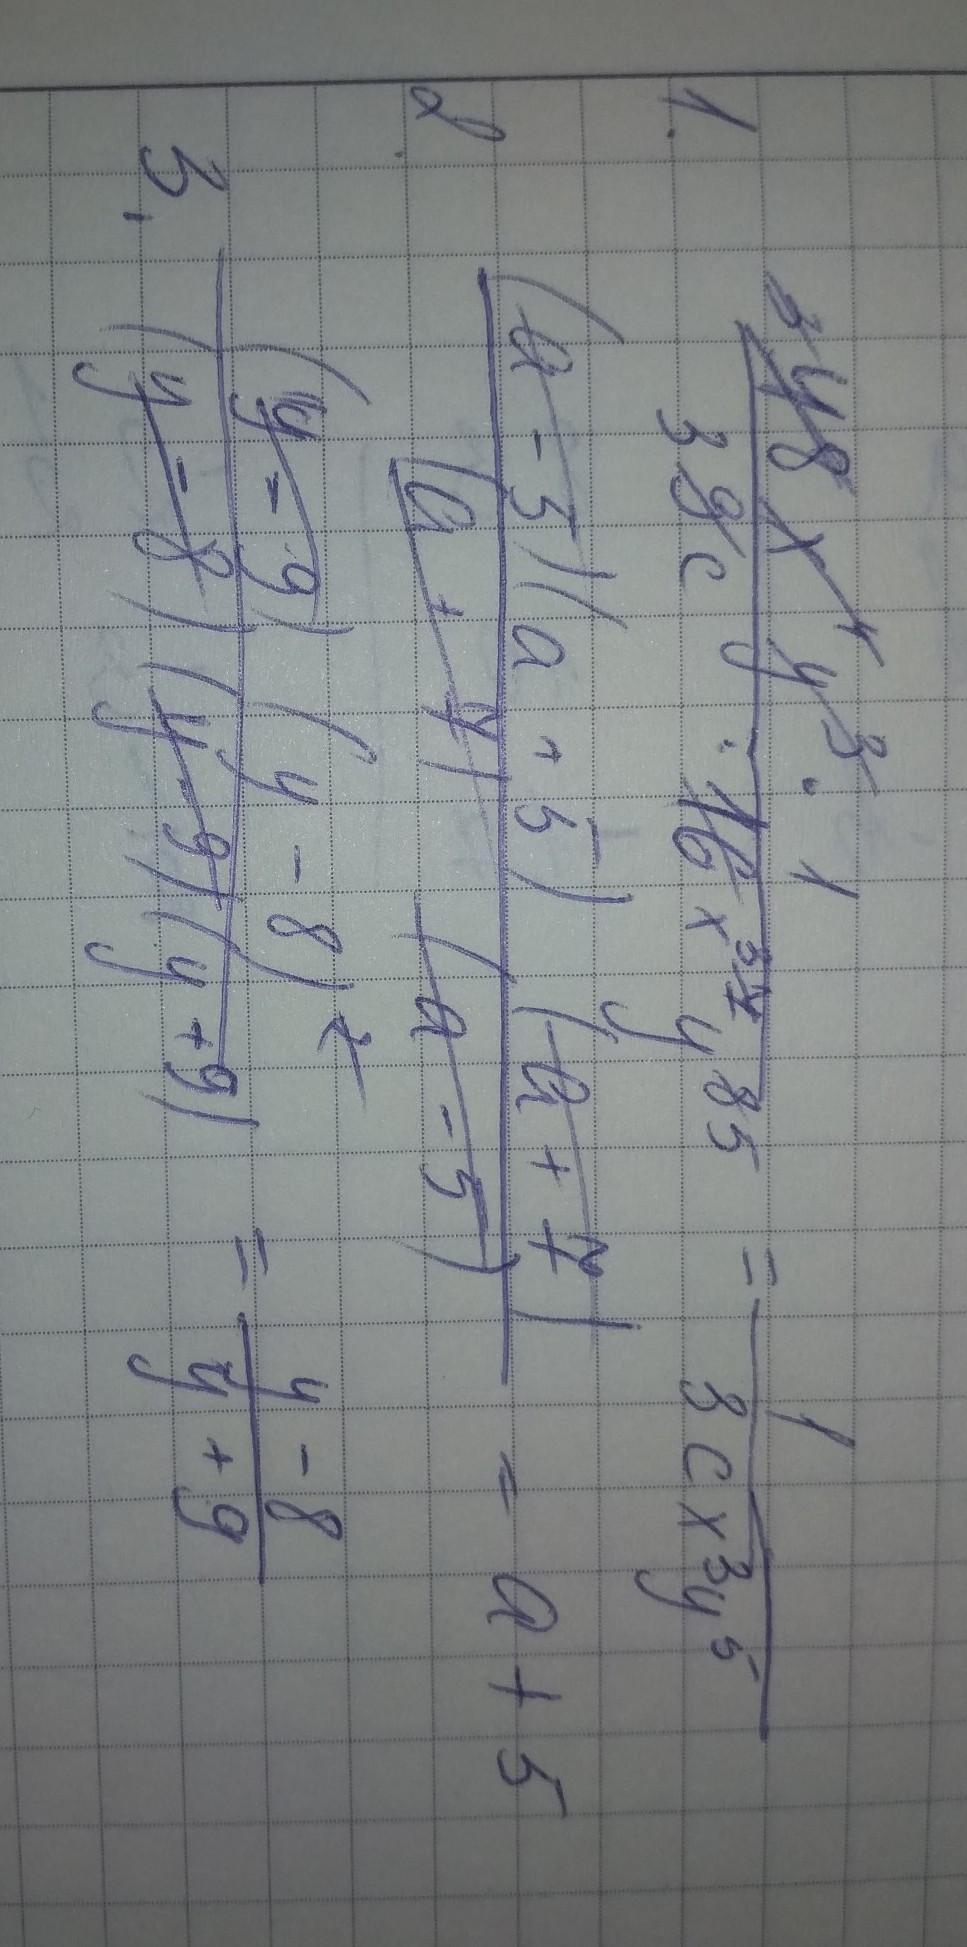 1. 3 48 x⁴ y³ · 1
3 9 c · 16 x³ ⁴ y 8 5 = 1 / 3 c x³ y⁵
2. (a - 5)(a + 5)(a + 7) / (a + 7)(a - 5) = a + 5
3. (y - 9)(y - 8)² / (y - 8)(y - 9)(y + 9) = y - 8 / y + 9